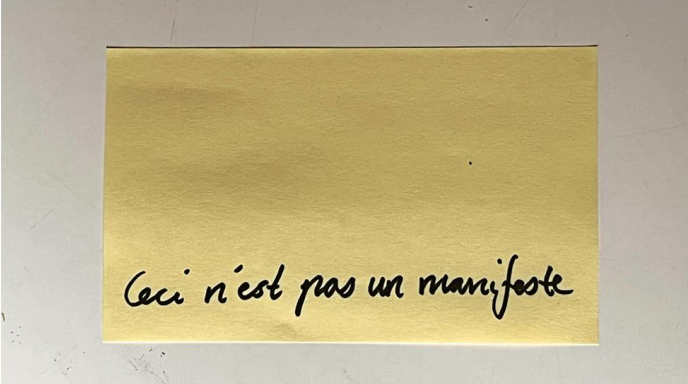 Ceci n'est pas un manifeste